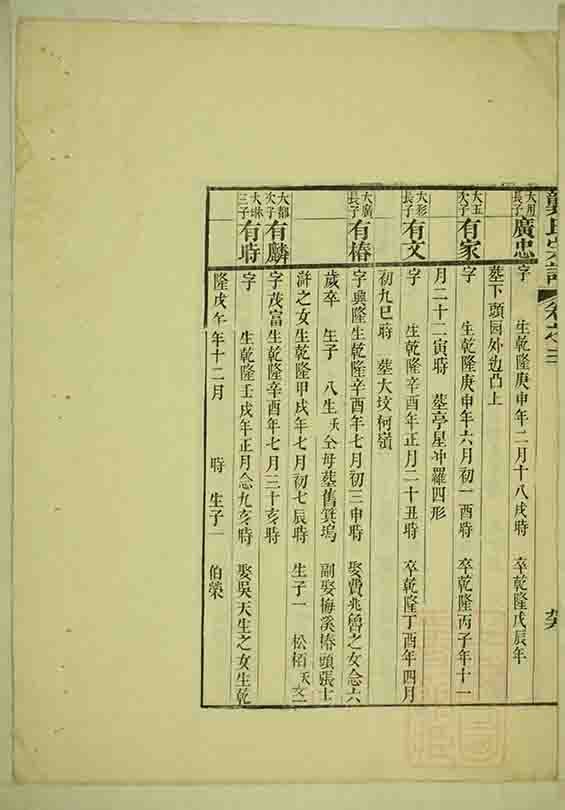 龔氏宗譜 卷之三
大用長子 廣忠 字 生乾隆庚申年二月十八戌時 卒乾隆戊辰年
墓下頭園外边凸上
大玉次子 有家 字 生乾隆庚申年六月初一酉時 卒乾隆丙子年十一
月二十二寅時 墓亭星冲羅四形
大彩長子 有文 字 生乾隆辛酉年正月二十丑時 卒乾隆丁酉年四月
初九巳時 墓大坟何嶺
大廣長子 有椿 字興隆生乾隆辛酉年七月初三申時 娶費兆魯之女念六
歲卒 生子 八生夭 仝母墓舊箕塢 副娶梅溪椿頭張士
之女生乾隆甲戌年七月初七辰時 生子一 松栢夭 女一
大都次子 有麟 字茂富生乾隆辛酉年七月三十亥時
大琳三子 有時 字 生乾隆壬戌年正月念九亥時 娶吳天生之女生乾
隆戊午年十二月 時 生子一 伯榮